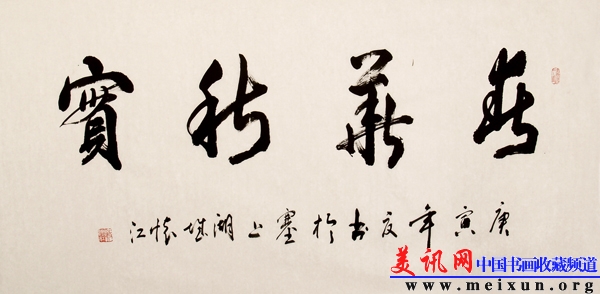 春華秋實
庚寅年夏書於塞上湖城懷江
美讯网 中国书画收藏频道
www.meixun.org